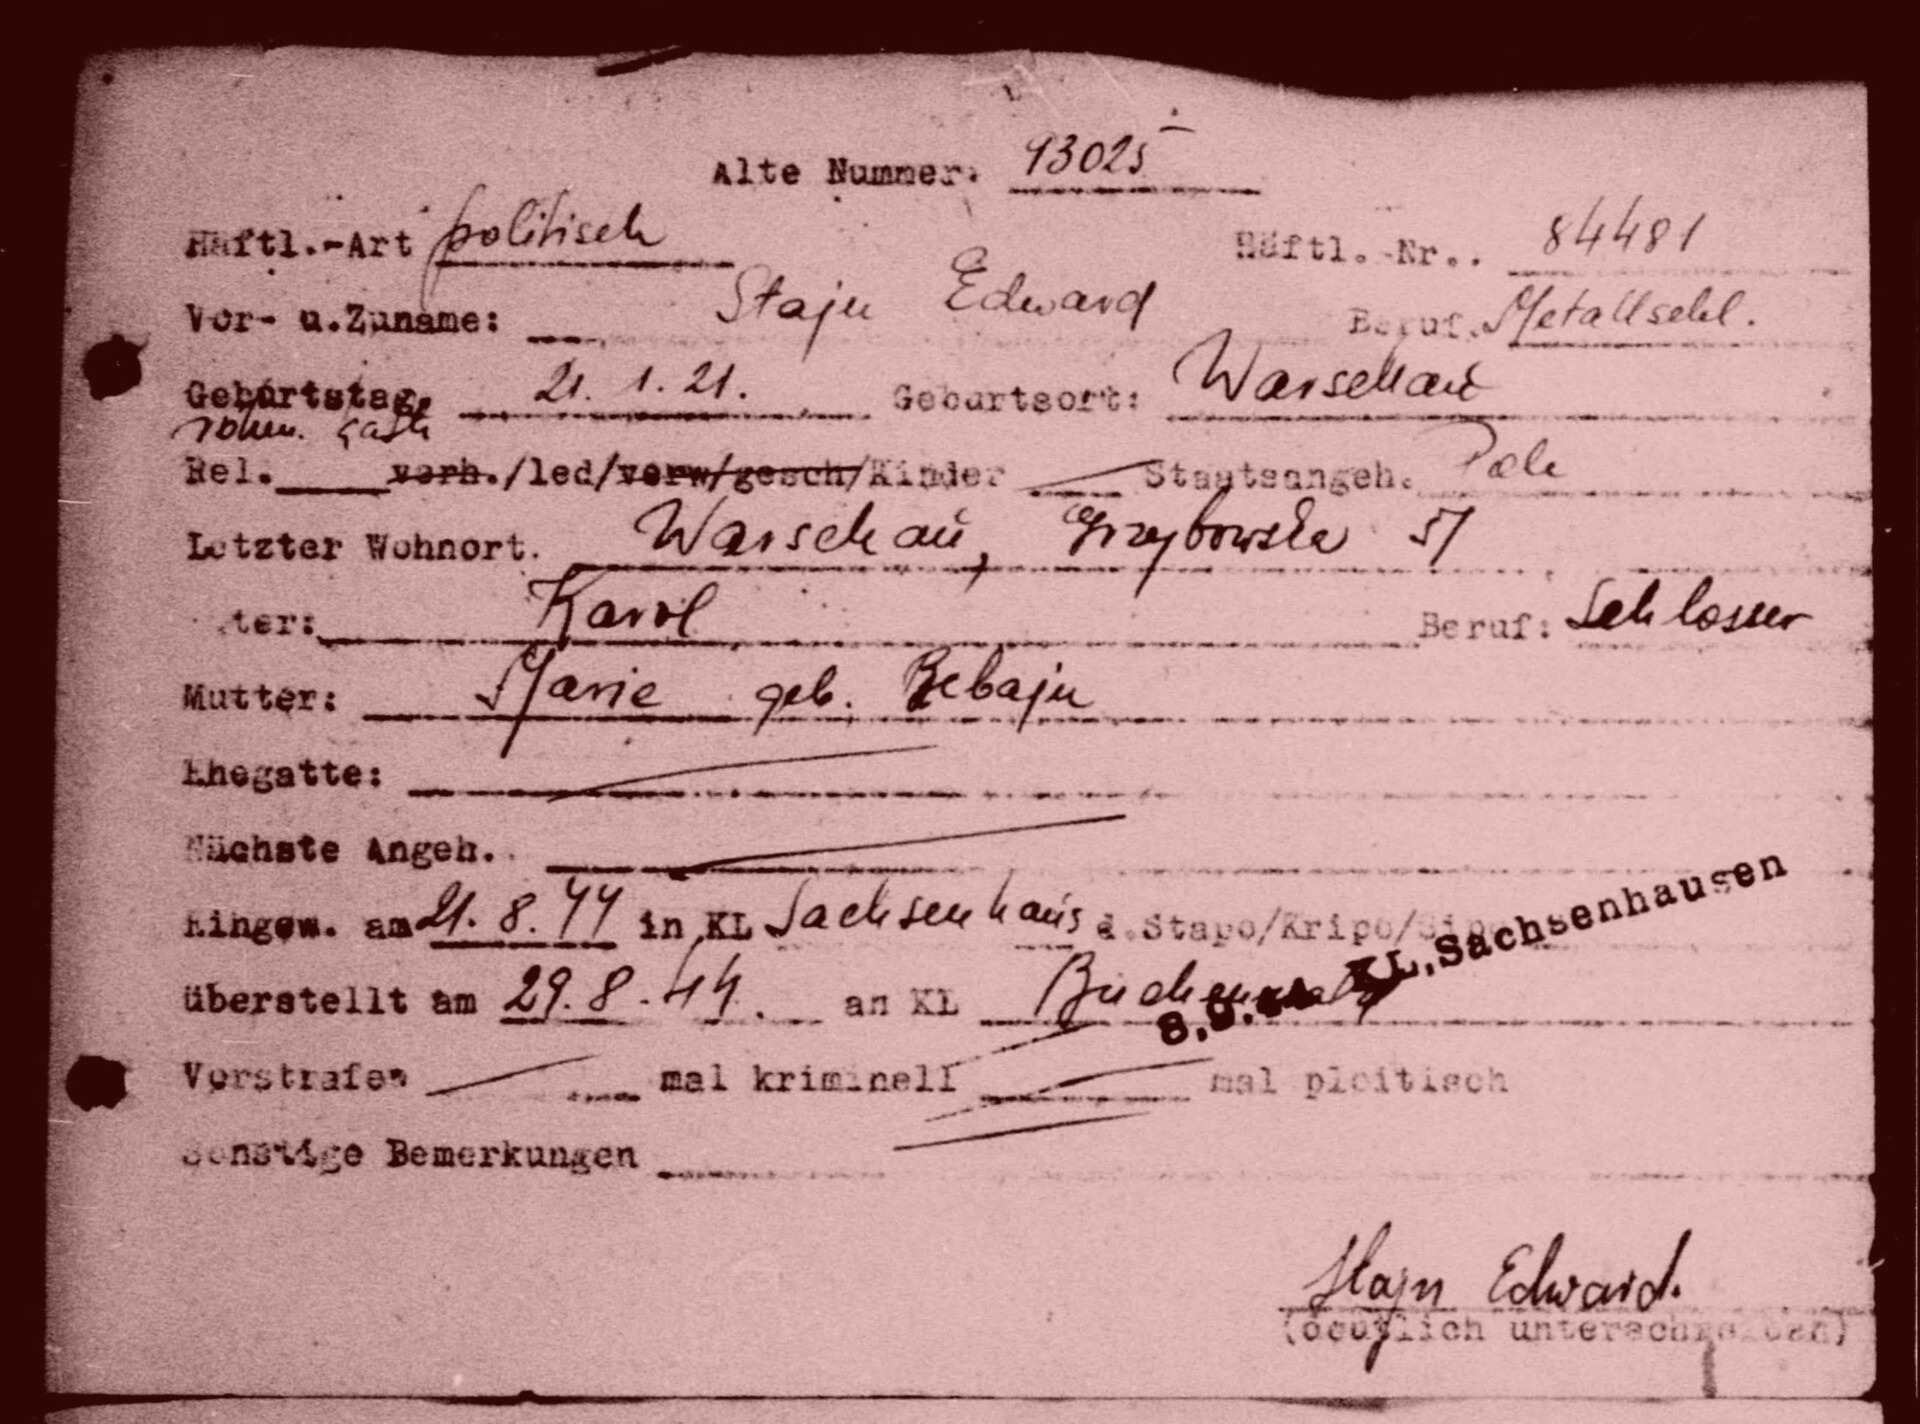 Alte Nummer: 93025
Häftl.-Art politisch Häftl.-Nr.. 84481
Vor- u.Zuname: Stajn Edward Beruf. Metallschl.
Geburtstag. 21. 1. 21. Geburtsort: Warschau
röm. kath
Rel. verh./led/verw/gesch/Kinder Staatsangeh. Pole
Letzter Wohnort. Warschau, Grzybowska 51
ter: Karol Beruf: Schlosser
Mutter: Marie geb. Bebajn
Ehegatte:
Nächste Angeh.
Eingew. am 21. 8. 44 in KL Sachsenhaus d.Stapo/Kripo/Sipo
KL.Sachsenhausen
überstellt am 29. 8. 44. an KL Buchenwald
Vorstrafen mal kriminell mal ploitisch
Sonstige Bemerkungen
Stajn Edward.
(deutlich unterschreiben)